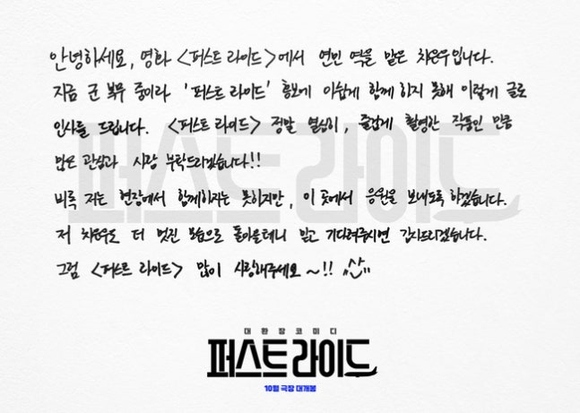 안녕하세요, 영화 <퍼스트 라이드>에서 연민 역을 맡은 차은우입니다.
지금 군 복무 중이라 '퍼스트 라이드' 홍보에 아쉽게 함께 하지 못해 이렇게 글로
인사를 드립니다. <퍼스트 라이드> 정말 열심히, 즐겁게 촬영한 작품인 만큼
많은 관심과 사랑 부탁드리겠습니다!!
비록 저는 현장에서 함께하지는 못하지만, 이 곳에서 응원을 보내도록 하겠습니다.
저 차은우도 더 멋진 모습으로 돌아올테니 믿고 기다려주시면 감사드리겠습니다.
그럼 <퍼스트 라이드> 많이 사랑해주세요 ~!! ^^
퍼스트 라이드
대환장코미디
퍼스트 라이드
10월 극장 대개봉